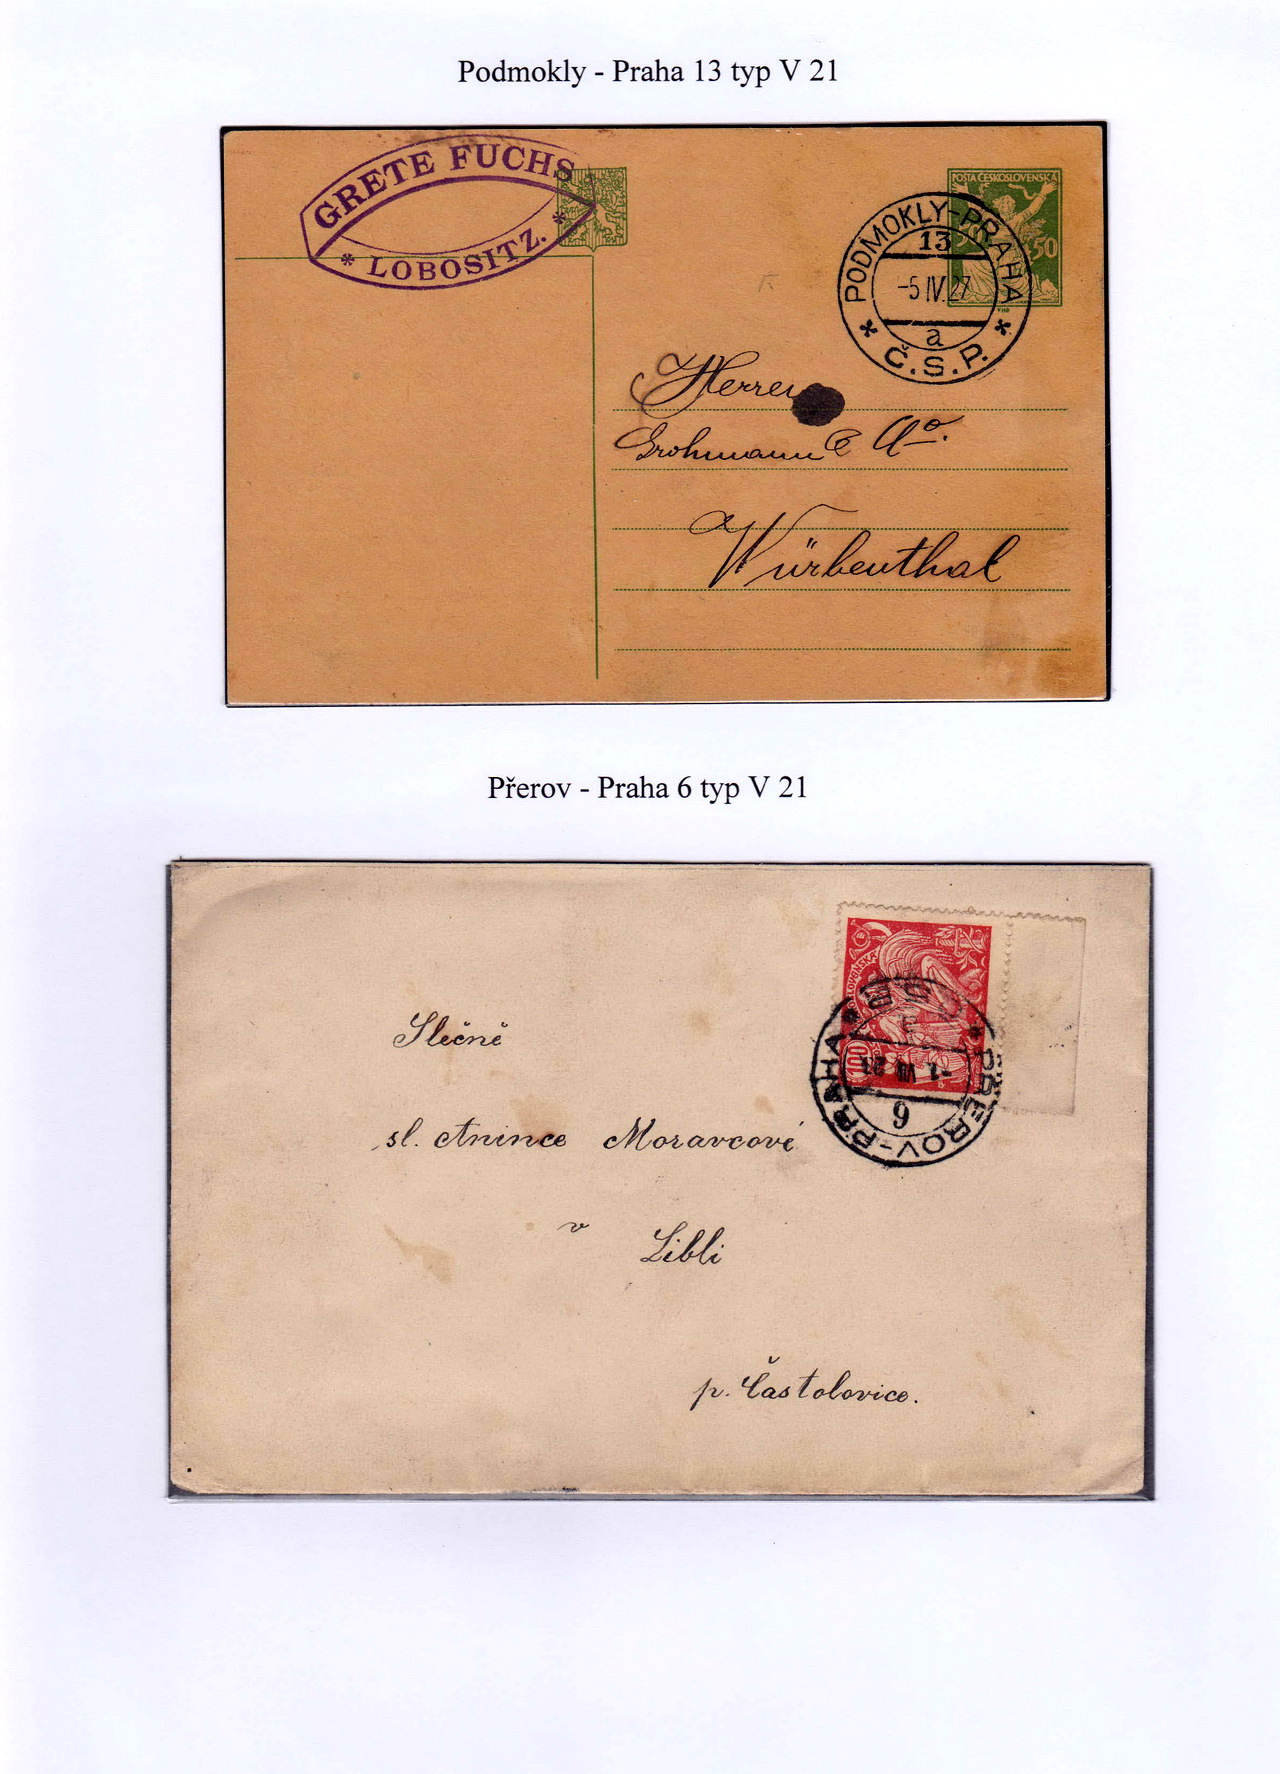 Podmokly - Praha 13 typ V 21
GRETE FUCHS
* LOBOSITZ. *
POŠTA ČESKOSLOVENSKÁ
50
PODMOKLY-PRAHA
13
-5 IV. 27
a
* Č.S.P. *
Herren
Grohmann & Co.
Würbenthal
Přerov - Praha 6 typ V 21
100
PŘEROV-PRAHA
6
Slečně
sl. Anince Moravcové
v Libli
p. Častolovice.